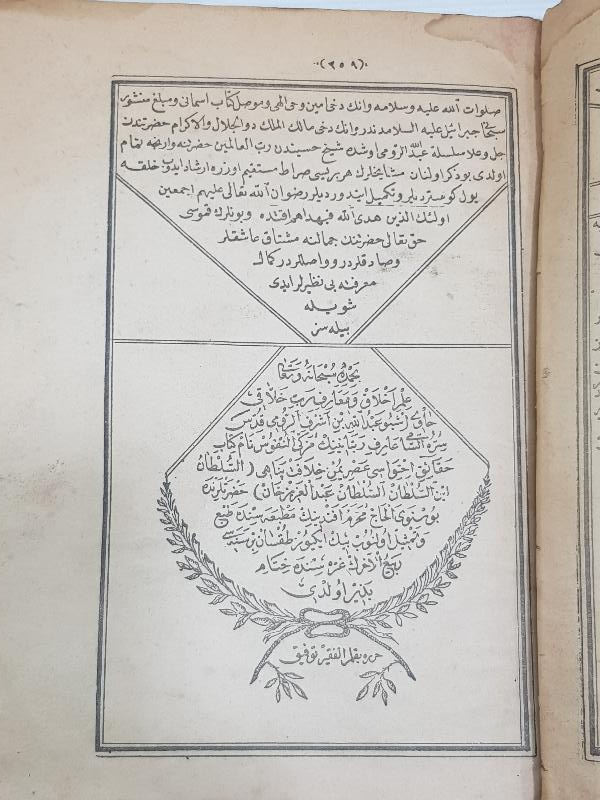 (٢٥٩)
صلوات الله عليه وسلامه وانك دخى امين وحى الهى وموصل كتاب اسمانى ومبلغ منشور
سبحانى جبرائيل عليه السلامدندر وانك دخى مالك الملك ذو الجلال والاكرام حضرتندن
جل وعلا سلسلة عبد الله الرومى اوشده شيخ حسيندن رب العالمين حضرتنه وارنجه تمام
اولدى بو ذكر اولنان مشايخلرك هر بريسى صراط مستقيم اوزره ارشاد ايدوب خلقه
يول كوستردیلر وتكميل ايتديرديلر رضوان الله تعالى عليهم اجمعين
اولئك الذين هدى الله فبهداهم اقتده وبونلرك قموسى
حق تعالى حضرتنك جمالنه مشتاق عاشقلر
وصادقلردر وواصللردر كمال
معرفته بى نظيرلر ايدى
شويله
بيله سز
بحمده سبحانه وتعالى
علم اخلاق ومعارف رب خلاقى
حاوى اشبو عبد الله بن اشرف الرومى قدس
سره السامى عارف ربانينك مزكى النفوس نام كتاب
حقايق احتواسى عصر يمن خلافتپناهى (السلطان
ابن السلطان السلطان عبد العزيز خان) حضرتلرنده
بوسنوى الحاج محرم افندينك مطبعه سنده طبع
وتمثيل اولنوب بيك ايكيوز طقسان بر سنه سى
ربيع الآخرك غره سنده ختام
پذير اولدى
حرره بقلم الفقير توفيق